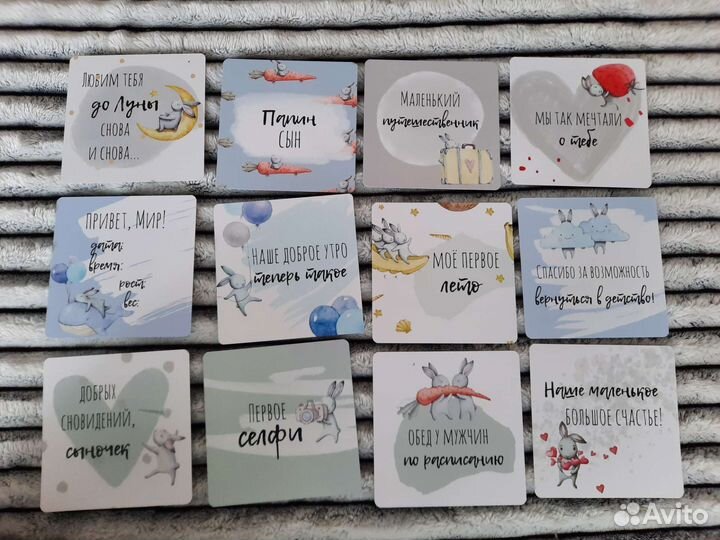 Любим тебя
до Луны
снова
и снова...
Папин
сын
Маленький
путешественник
мы так мечтали
о тебе
Привет, Мир!
дата:
время:
рост:
вес:
Наше доброе утро
теперь такое
Моё первое
лето
Спасибо за возможность
вернуться в детство!
Добрых
сновидений,
сыночек
Первое
селфи
Обед у мужчин
по расписанию
Наше маленькое
большое счастье!
Avito